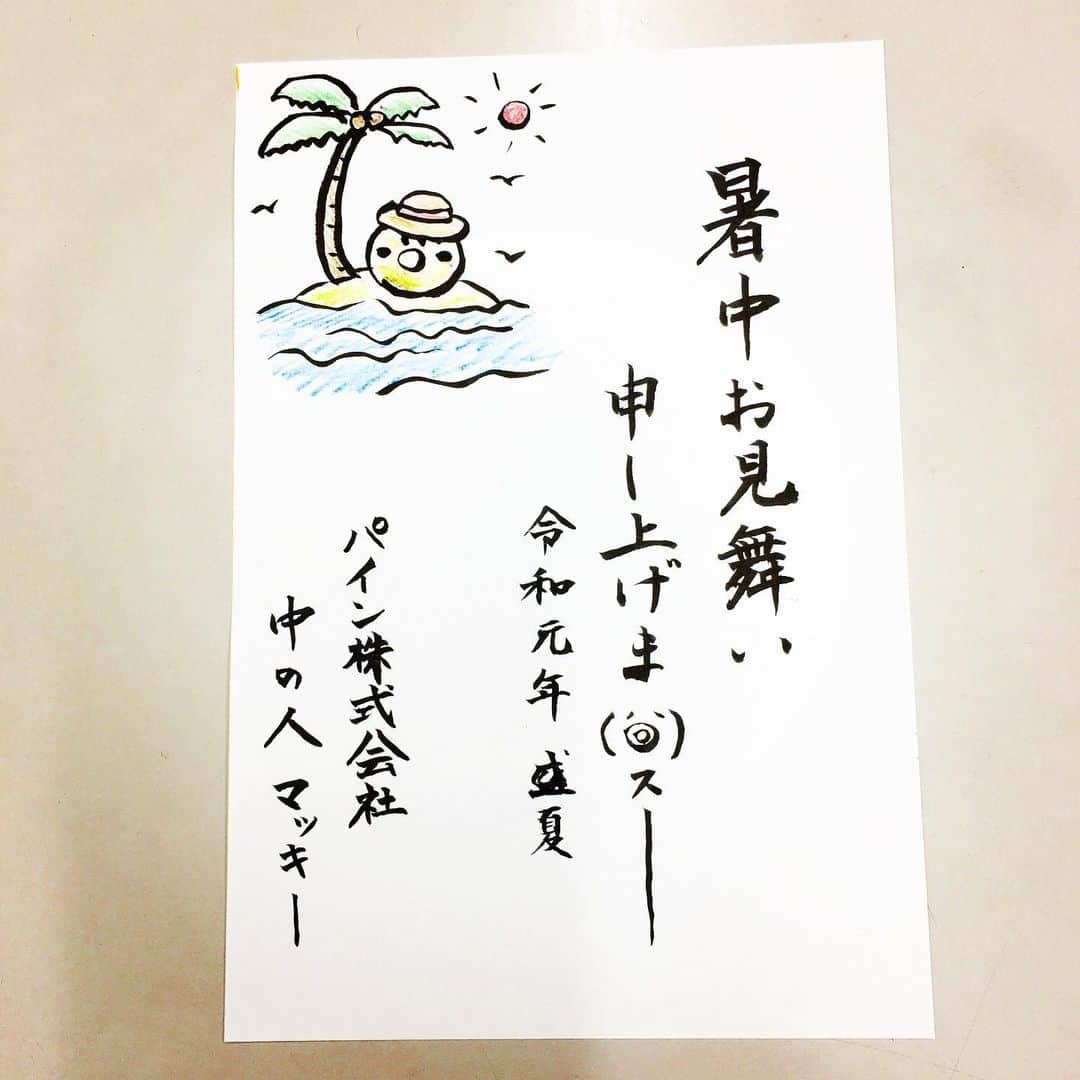 暑中お見舞い
申し上げま(◎)スー
令和元年 盛夏
パイン株式会社
中の人 マッキー